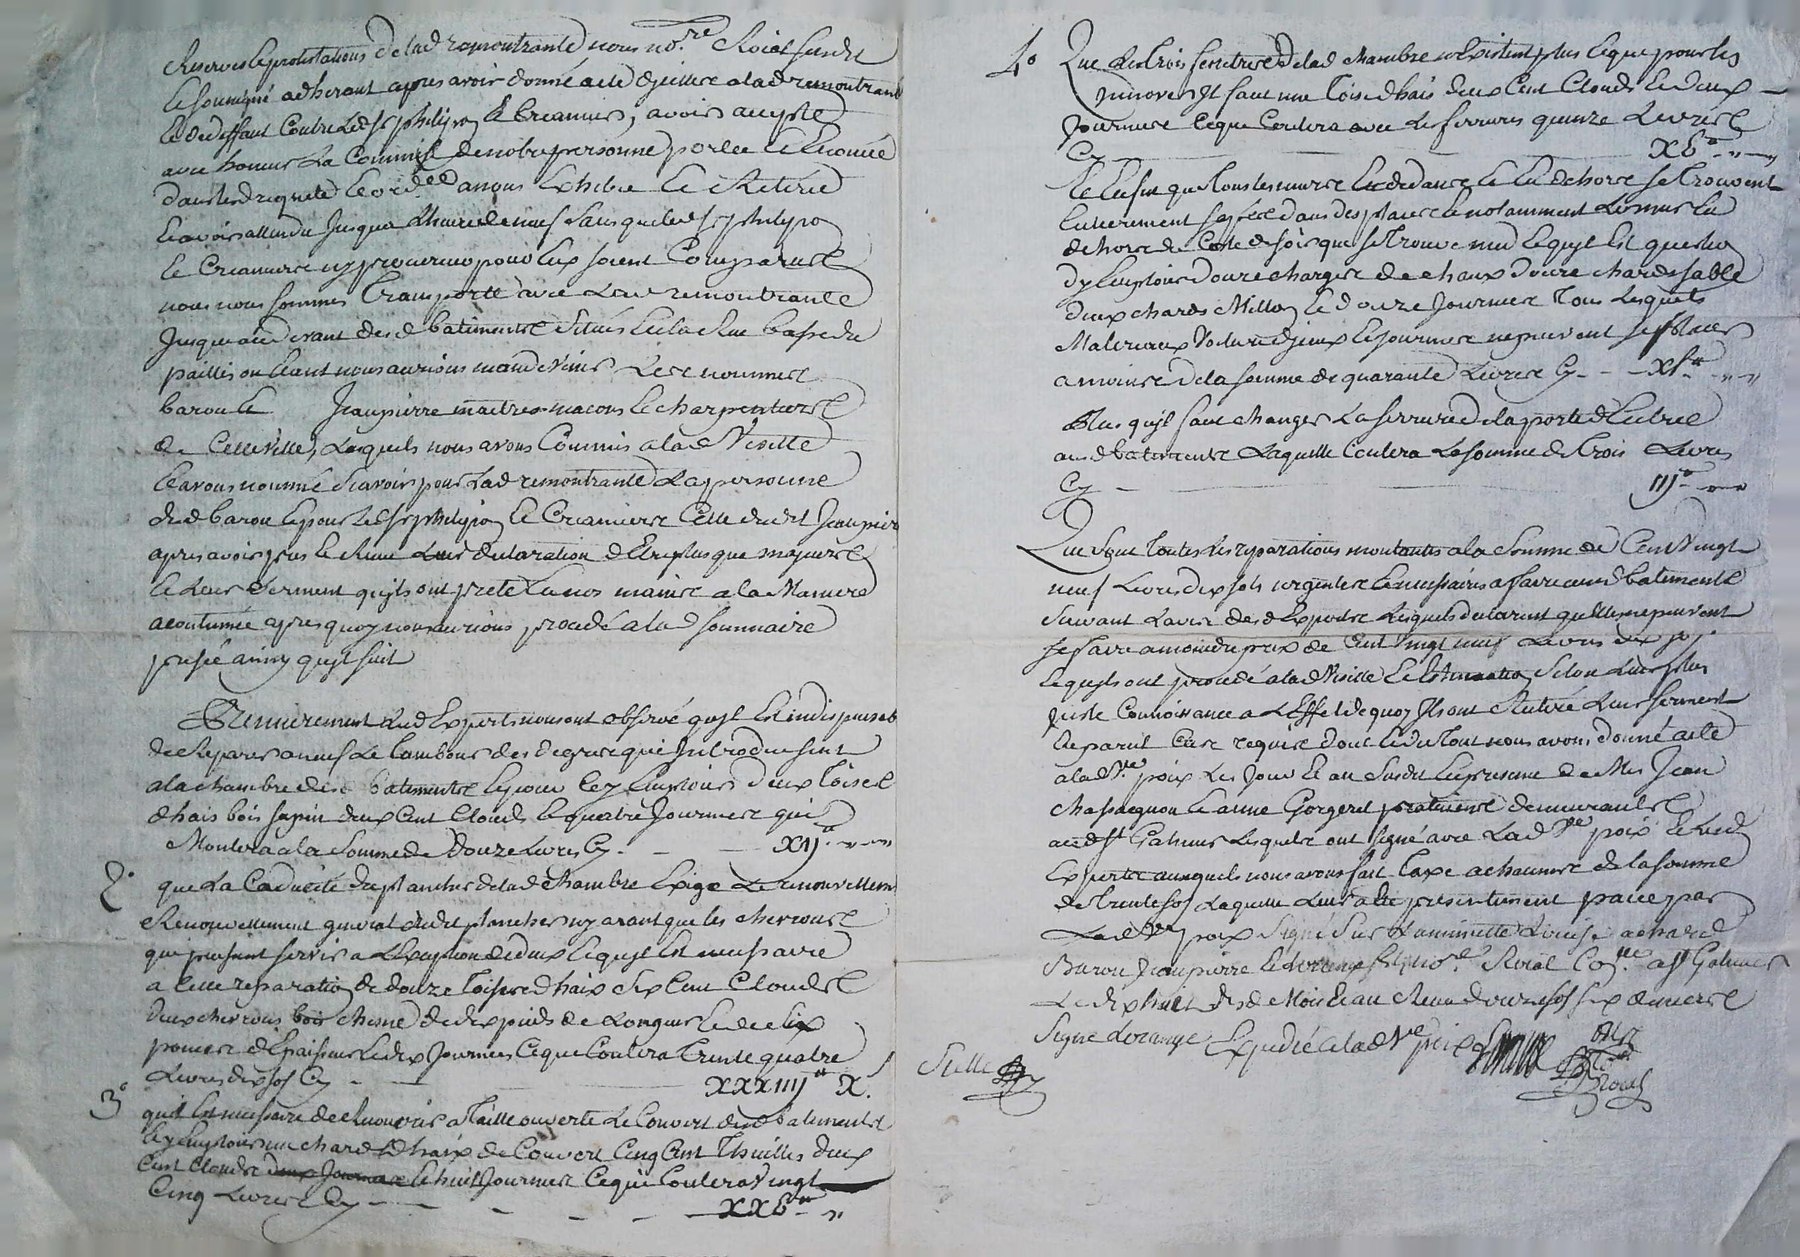 Reserves & protestations de lad remontrante nous no.re Roial susdit
& soussigné adherant apres avoir donné acte d'icelles a lad remontrante
& de deffaut contre led Sr philipon & Creamier, avoir accepté
avec honneur la Commission de notre personne portée & enoncée
dans led requete & ord.ce a nous Exhibée & Retirée
& avoir attendu jusqua L'heure de neuf sans que led Sr philipon
& Creamier ny procureur pour Eux soient Comparus
nous nous sommes transporté avec Lad remontrante
jusque au devant desd batiments situés En la Rue basse du
paillis ou Etant nous aurions mandé venir Les nommes
baron & Jeanpierre maitres macons & charpentiers
de Cette ville, Lesquels nous avons Commis a lad Visitte
& avons nommé scavoir pour Lad remontrante La personne
dud baron & pour led Sr philipon & Creamier Celle dudit Jeanpierre
apres avoir pris & Reçu Leur declaration d'Etre plus que majeurs
& Leur Serment qu'ils ont preté En nos mains a la Maniere
acoutumée apres quoy nous aurions procédé a lad sommaire
prisée ainsy qu'il suit
Premierement Lesd Experts nous ont observé qu'il Est indispensable
de Reparer a neuf Le tambour des degres qui Introduisent
a la chambre desd batiments & pour Ce y Emploier deux toises
d'hais bois sapin deux Cent Clouds & quatre Journées qui
Montera a la Somme de Douze Livres Cy - - XIJ.tt " "
2° que La Caducité du plancher de lad chambre Exige Le renouvellem
Renouvellement general dudit plancher ny aiant que les chevrons
qui puissent servir a L'exeption de deux & qu'il Est necessaire
a Cette reparation de douze toises d'haix Six Cent Clouds
deux chevrons bois chesne de dix pieds de Longueur & de six
pouces d'Epaisseur & dix Journées Ce que Coutera trente quatre
Livres dix sols Cy - XXXIIIJtt X.s
3° qu'il Est necessaire de Recouvrir a taille ouverte Le Couvert desd batiments
& y Emploier un chard d'haix de Couvert Cinq Cent thuilles deux
Cent Clouds deux Journées & huit Journées Ce qui Coutera Vingt
Cinq Livres Cy - - - - XXVtt "
4° Que Les trois fenetres de lad chambre n'Existent plus & que pour les
renover Il faut une toise d'hais deux Cent Clouds & deux
Journées Ce que Coutera avec Les ferrures quinze Livres
Cy XVtt " "
Et Enfin que tous les murs En dedans & En dehors se trouvent
Entierement degradés dans des places & notamment Le mur En
dehors du Coté de soir que se trouve nud & qu'il Est question
d'y Emploier douze charges de chaux douze chards sable
deux chards Millon & douze Journées tous Lesquels
Materiaux Voiture d'iceux & Journées ne peuvent se placer
a moins de la somme de quarante Livres Cy - - - XLtt " "
Plus qu'il faut changer La serrure de la porte d'Entrée
aud batiments Laquelle Coutera La somme de trois Livres
Cy - IIJtt " "
Que Sont toutes Les reparations montantes a la Somme de Cent Vingt
neuf Livres dix sols urgentes & necessaires a faire aud batiments
Suivant L'avis desd Experts Lesquels declarent qu'Elles ne peuvent
se faire a moindre prix de Cent Vingt neuf Livres dix sols
& qu'ils ont procédé a lad Visitte & Estimation Selon Leur plus
juste Connoissance a L'Effet de quoy Ils ont Reiteré Leur Serment
En pareil Cas requis dont & du tout nous avons donné acte
a lad Ve poix Les Jour & an Susdit En presence de Mes Jean
Chassagnon & anne Gorgeret praticiens demeurants
aud St Galmier Lesquels ont signé avec Lad Ve poix & Lesd
Experts auxquels nous avons fait taxe a chacun de la somme
de trente sols Laquelle Leur a été presentement payée par
Lad Ve poix Signé Sur
Baron Jeanpierre & no.re Roial a St Galmier
Le dix huit desd Mois & an Recu douze sols six deniers
Signe Lorange Expedié a lad Ve poix
Scellé